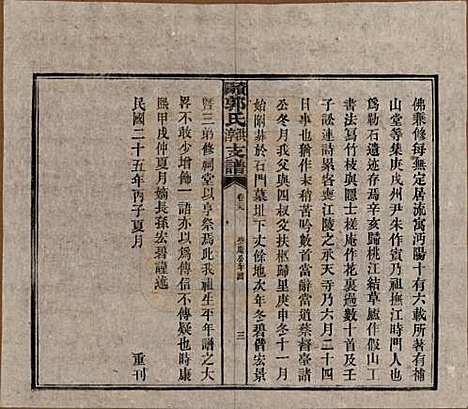 佛乘修每無定居流寓沔陽十有六載所著有補
山堂等集庚戌州尹朱作賓乃祖撫江時門人也
為勒石遺迹存焉辛亥歸桃江結草廬作假山工
書法寫竹枝與隱士槎庵作花裏過數十首壬
子訟連詩累客喪江陵之承天寺乃六月二十四
日事也猶作末稍苦吟數首當辭當道蔡督臺諸
公冬月我父與四叔父扶柩歸里庚申冬十一月
始開葬於石門墓圳下丈餘地次年冬碧偕宏景
郭氏 支譜
三
暨三弟修祠堂以享祭焉此我祖生平年譜之大
畧不敢少增飾一語亦以為傳信不傳疑也時康
熙甲戌仲夏月嫡長孫宏碧謹述
民國二十五年丙子夏月 重刊